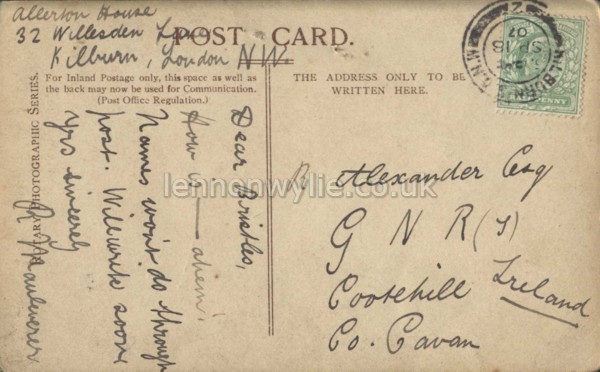 Allerton House
32 Willesden Lane
Kilburn, London NW
POST CARD.
For Inland Postage only, this space as well as
the back may now be used for Communication.
(Post Office Regulation.)
THE ADDRESS ONLY TO BE
WRITTEN HERE.
PHOTOGRAPHIC SERIES.
Dear Bristles,
How is — ahem!
Names won't do through
post. Will write soon
Yrs sincerely
R Mauleverer
R Alexander Esq
G N R (I)
Cootehill Ireland
Co. Cavan
KILBURN N.W.
SP 18
07
PENNY
lennonwylie.co.uk